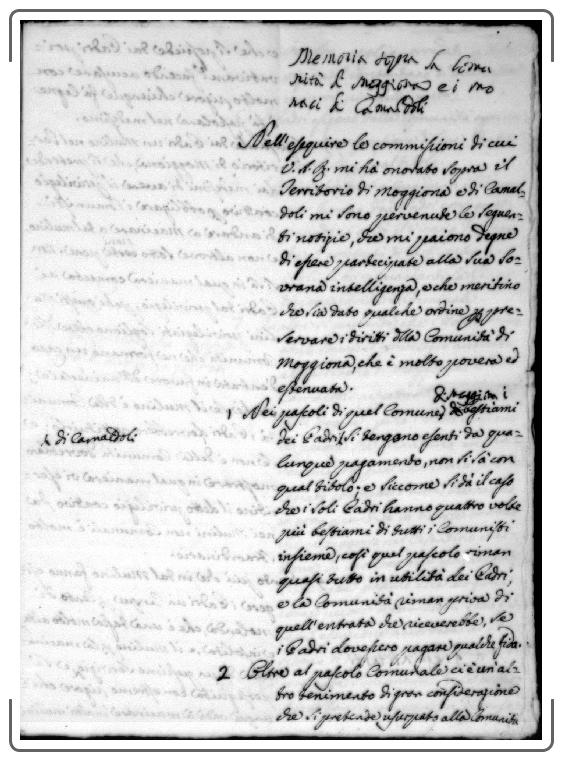 Memoria sopra la Comu
nità di Moggiona e i mo
naci di Camaldoli
Nell'eseguire le commissioni di cui
V. A. R. mi hà onorato sopra il
Territorio di Moggiona e di Camal-
doli mi sono pervenute le seguen-
ti notizie, che mi paiono degne
di essere partecipate alla sua so-
vrana intelligenza, e che meritino
che sia dato qualche ordine per pre-
servare i diritti della Comunità di
Moggiona, che è molto povera ed
estenuata.
di Moggiona i
1 Nei pascoli di quel Comune, bestiami
di Camaldoli
dei Padri si tengano esenti da qua-
lunque pagamento, non si sà con
qual titolo; e siccome si dà il caso
che i soli Padri hanno quattro volte
più bestiami di tutti i Comunisti
insieme, così quel pascolo riman
quasi tutto in utilità dei Padri,
e la Comunità riman priva di
quell'entrata che riceverebbe, se
i Padri dovessero pagare qualche fida.
2 Oltre al pascolo Comunale ci è un al-
tro tenimento di gran considerazione
che si pretende usurpato alla Comunità